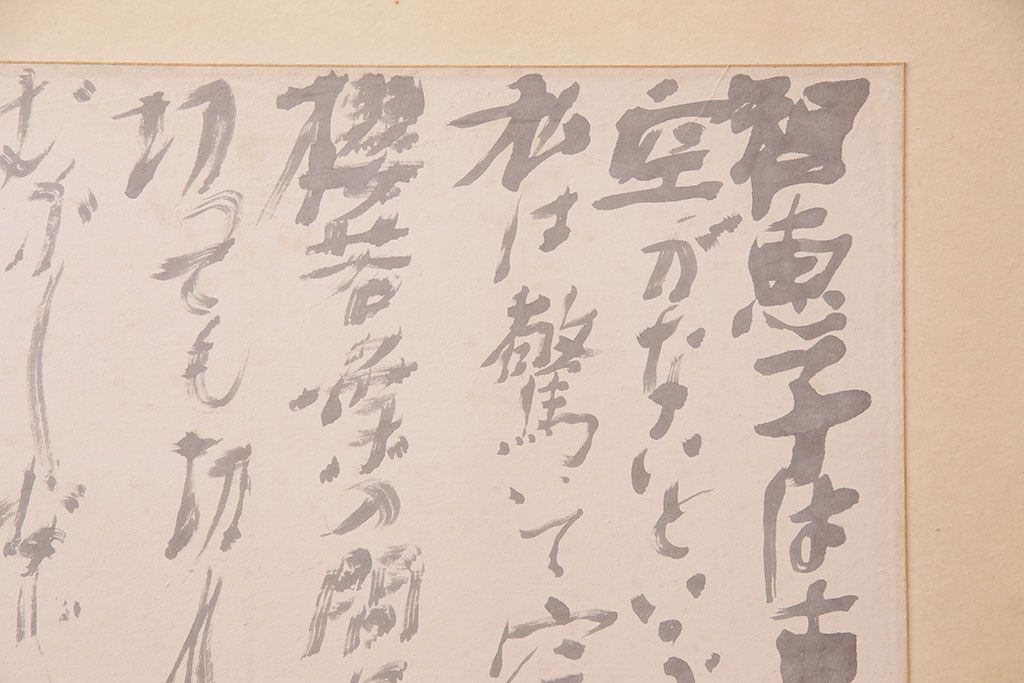 智恵子は東
空がないといふ
私は驚いて空
櫻若葉の間に
切つても切れ
むかしなじ